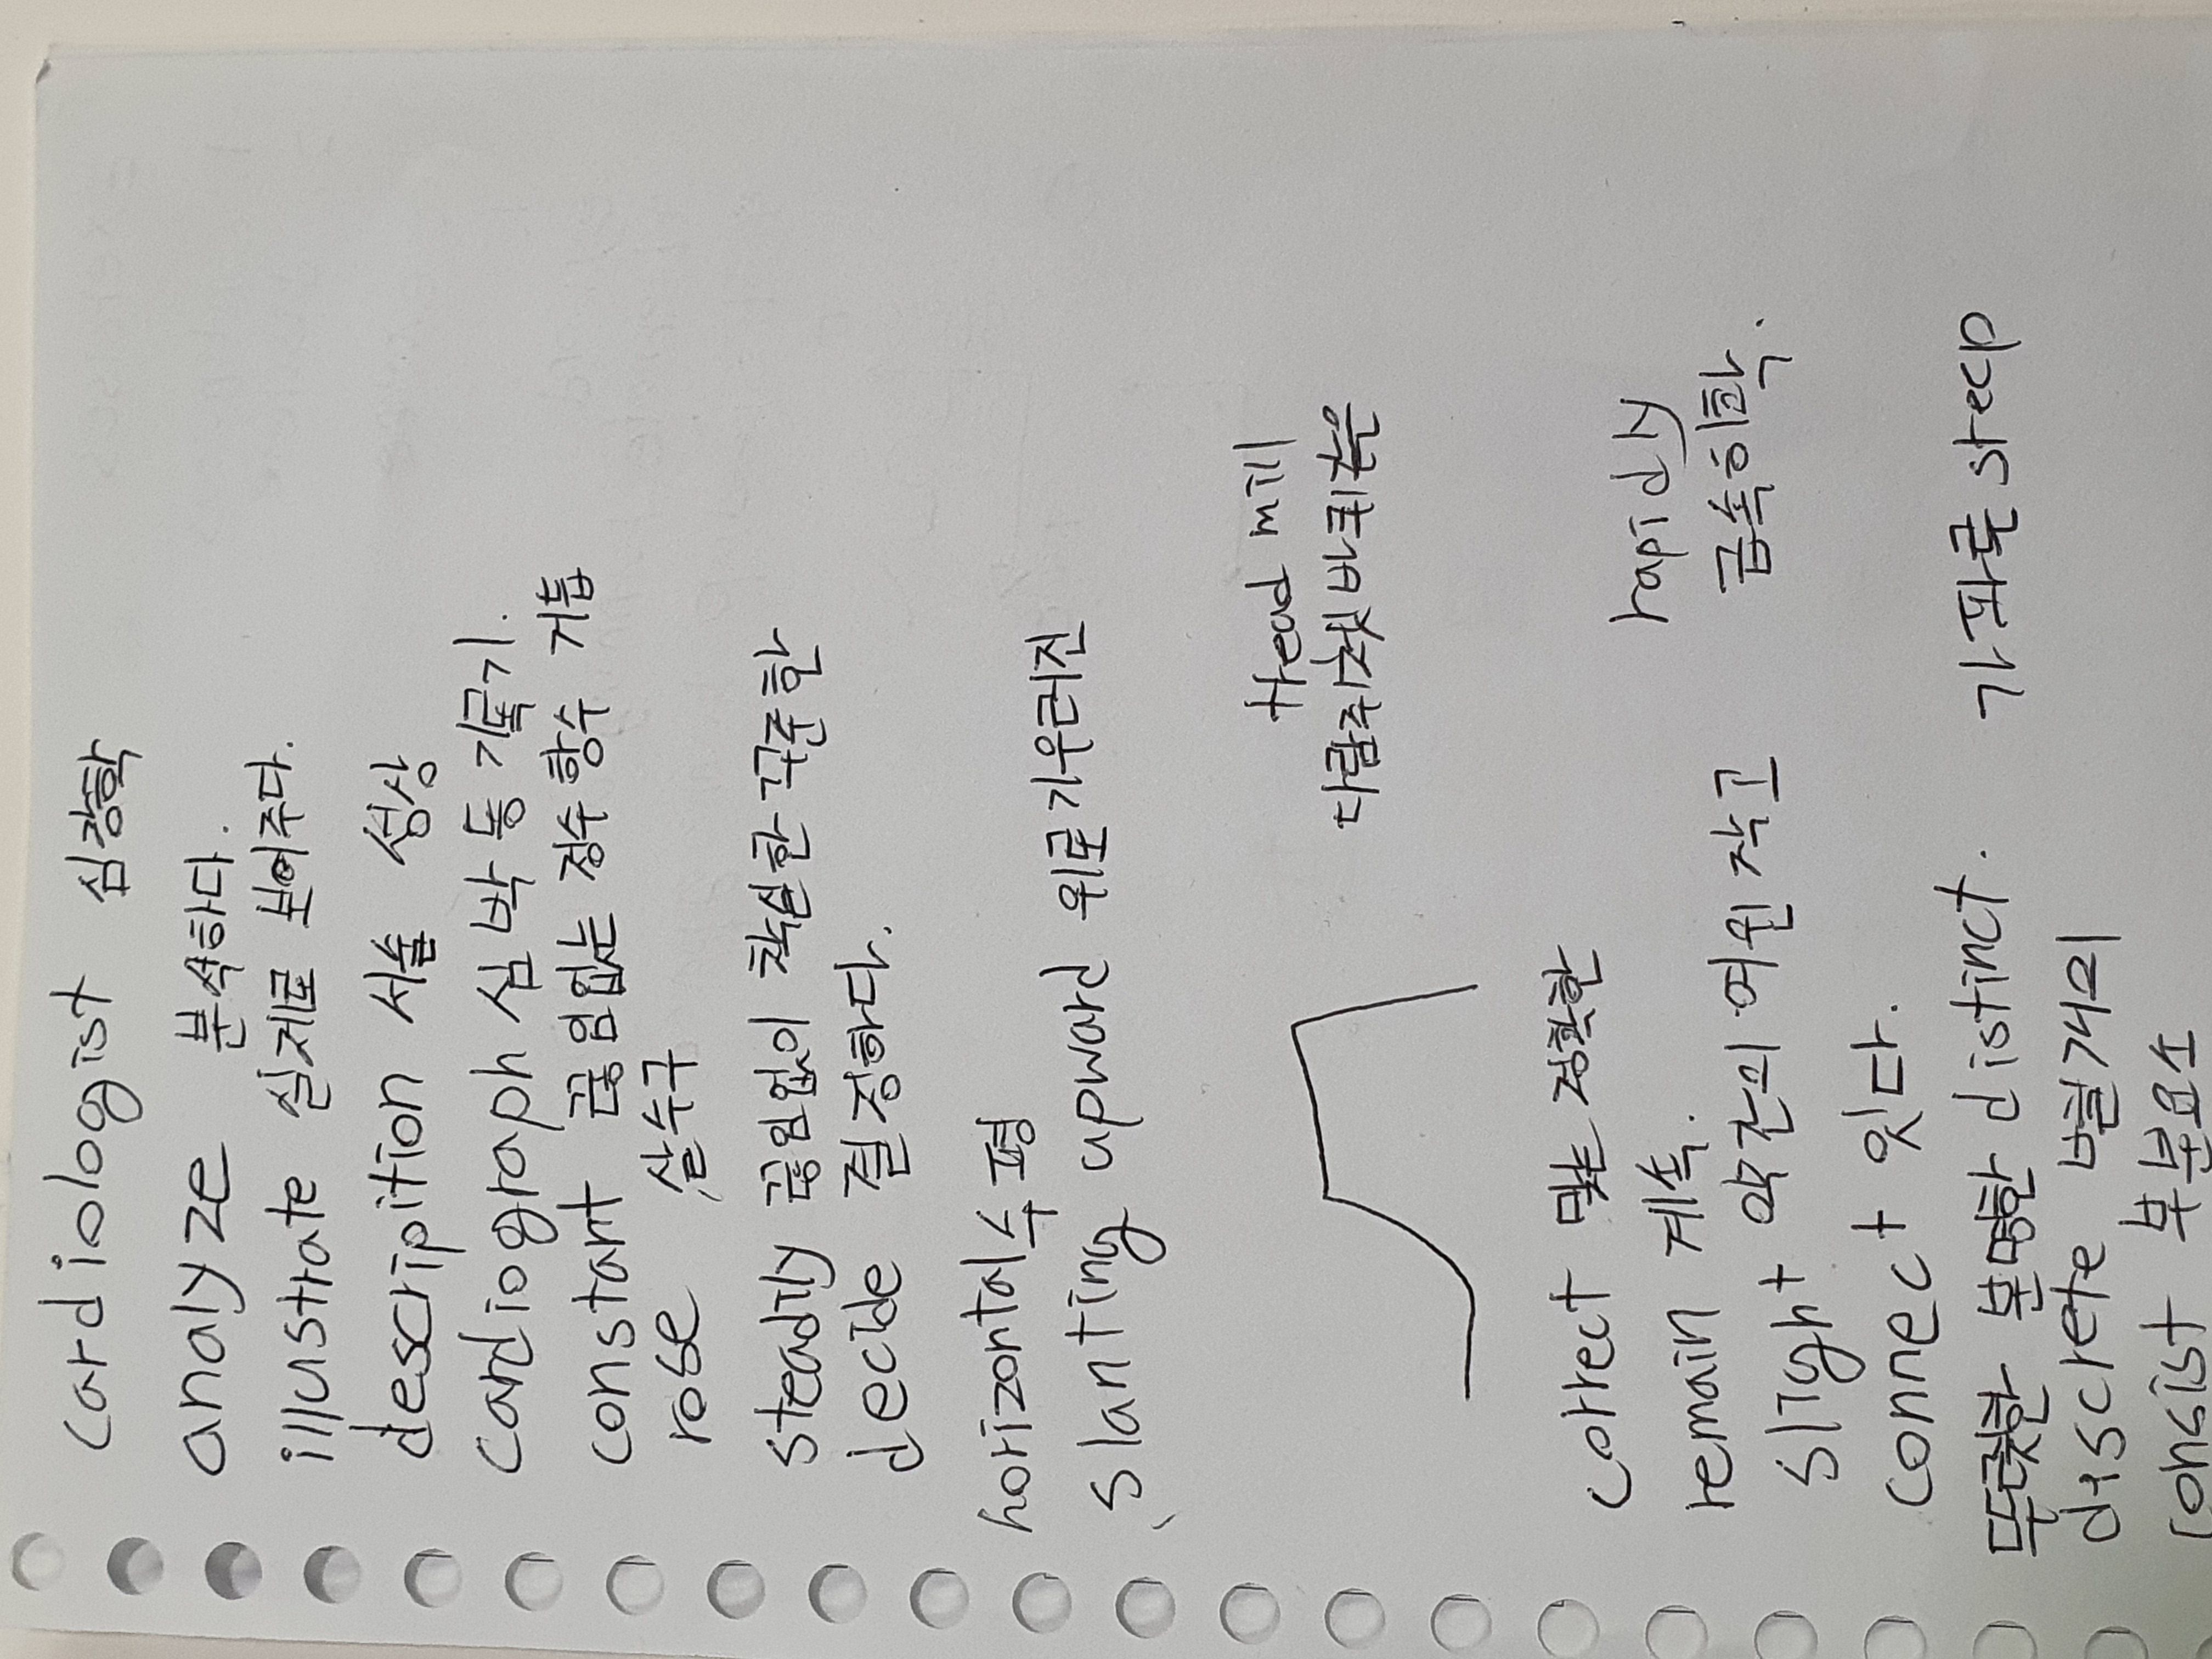 cardiologist 심장학
analyze 분석하다.
illustrate 실제로 보여주다.
descripition 서술 성상
cardiograph 심박동 기록기.
constant 끊임없는 정수 항수 거듭
rose 살수구
steadily 끊임없이 착실한 꾸준한
decide 결정하다.
horizontal 수평
slanting upward 위로 기우러진
tread mill
다람쥐쳇바퀴같은
correct 맞는 정확한
remain 계속.
rapidly
slight 약간의 여윈 작고
급속히
connect 잇다.
뚜렷한 분명한 distinct.
가파른 steep
discrete 별개의
consist 부분요소